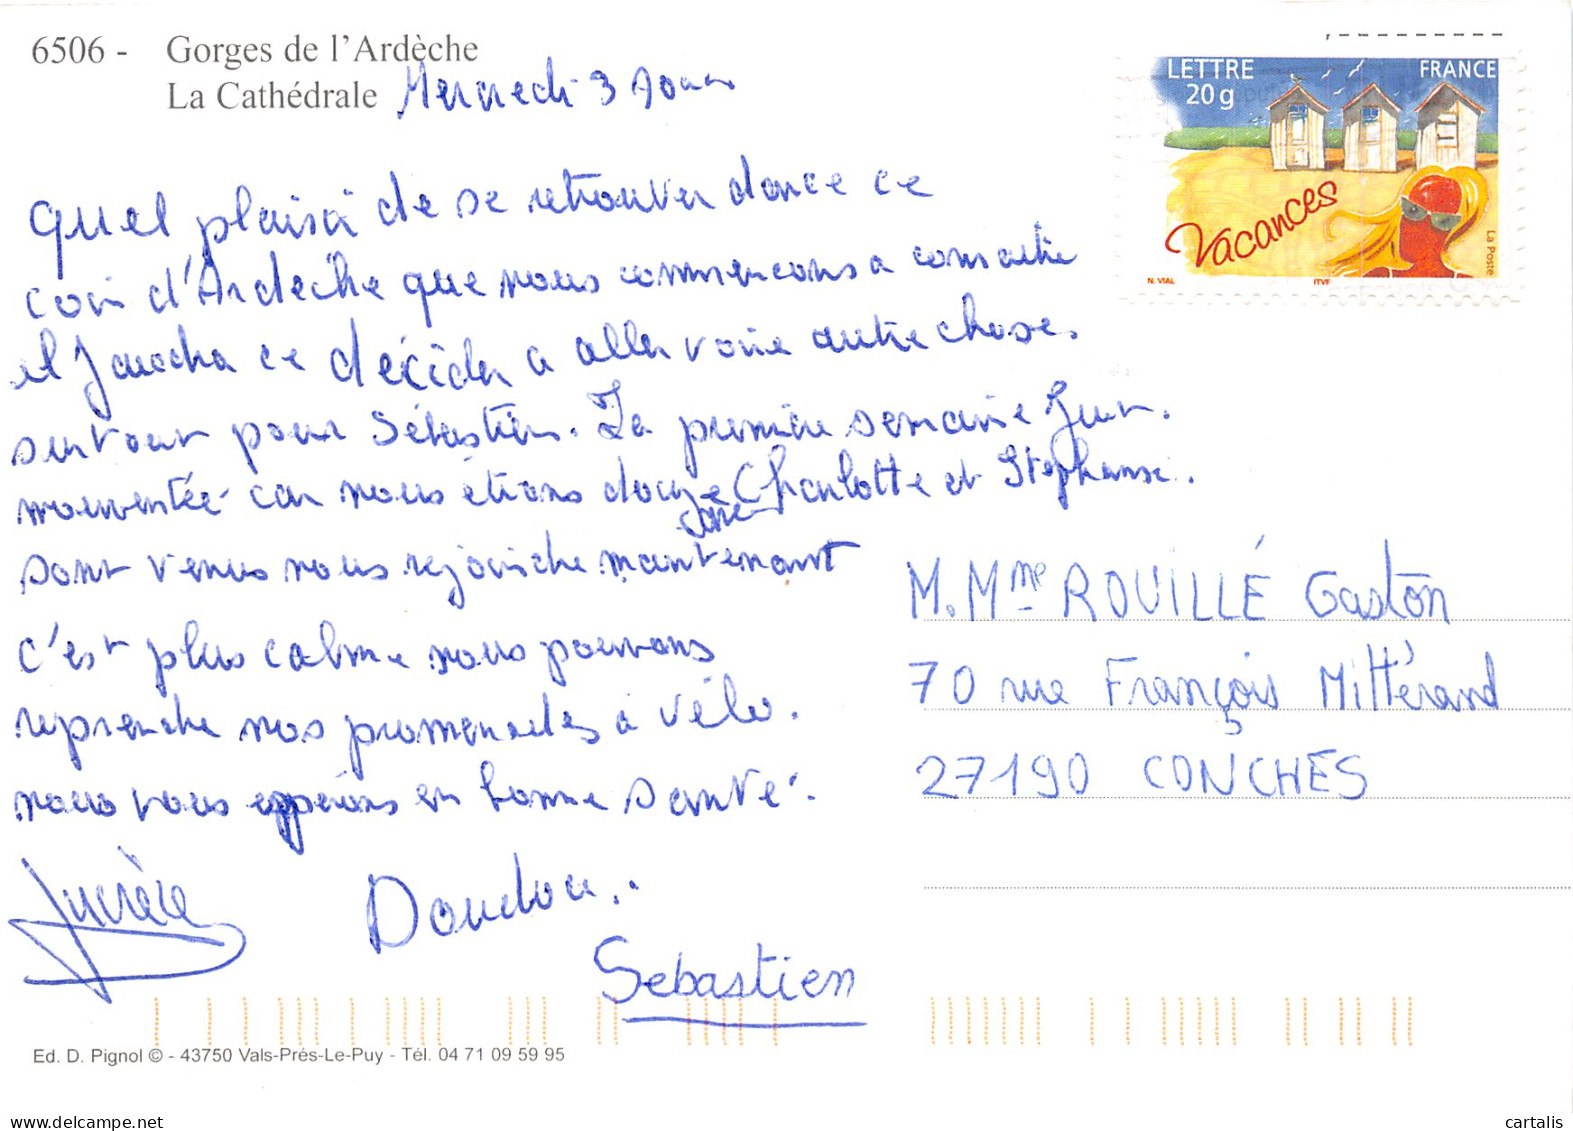 6506 - Gorges de l'Ardèche
La Cathédrale
Mercredi 3 Aout
LETTRE
20 g
FRANCE
Vacances
La Poste
N. VIAL
ITVF
Quel plaisir de se retrouver dans ce
coin d'Ardèche que nous commencons a connaitre
il faudra ce décider a aller voir autre chose.
surtout pour Sébastien. La première semaine fut.
mouvmentée car nous étions douze Charlotte et Stephane.
sont venus nous rejoindre maintenant
c'est plus calme nous pouvons
reprendre nos promenades a vélo.
nous vous espérons en bonne santé.
Doudou..
Sebastien
M. Mme ROUILLÉ Gaston
70 rue François Mittérand
27190 CONCHES
Ed. D. Pignol © - 43750 Vals-Prés-Le-Puy - Tél. 04 71 09 59 95
cartalis